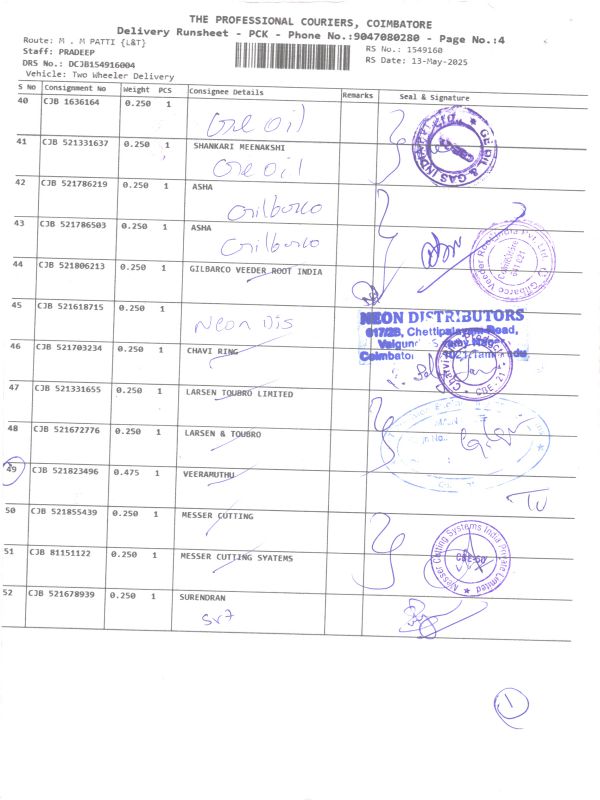 THE PROFESSIONAL COURIERS, COIMBATORE
Delivery Runsheet - PCK - Phone No.:9047080280 - Page No.:4
Route: M . M PATTI {L&T}
RS No.: 1549160
Staff: PRADEEP
RS Date: 13-May-2025
DRS No.: DCJB154916004
Vehicle: Two Wheeler Delivery
S No Consignment No Weight PCS Consignee Details Remarks Seal & Signature
40 CJB 1636164 0.250 1
Gre oil
41 CJB 521331637 0.250 1 SHANKARI MEENAKSHI
Gre oil
42 CJB 521786219 0.250 1 ASHA
Gilbarco
43 CJB 521786503 0.250 1 ASHA
Gilbarco
44 CJB 521806213 0.250 1 GILBARCO VEEDER ROOT INDIA
45 CJB 521618715 0.250 1
Neon Dis
NEON DISTRIBUTORS
46 CJB 521703234 0.250 1 CHAVI RING
47 CJB 521331655 0.250 1 LARSEN TOUBRO LIMITED
48 CJB 521672776 0.250 1 LARSEN & TOUBRO
49 CJB 521823496 0.475 1 VEERAMUTHU
50 CJB 521855439 0.250 1 MESSER CUTTING
Messer Cutting Systems India Private Limited
CBE-50
51 CJB 81151122 0.250 1 MESSER CUTTING SYATEMS
52 CJB 521678939 0.250 1 SURENDRAN
sr7
1